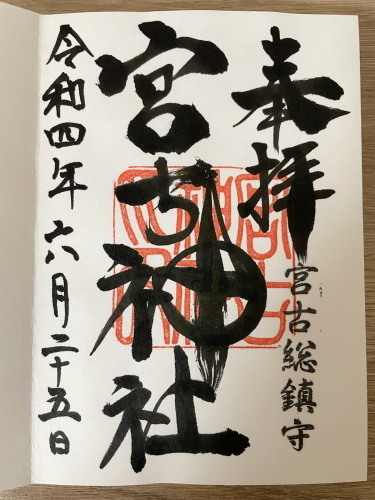 奉拝
宮古総鎮守
宮古神社
令和四年六月二十五日